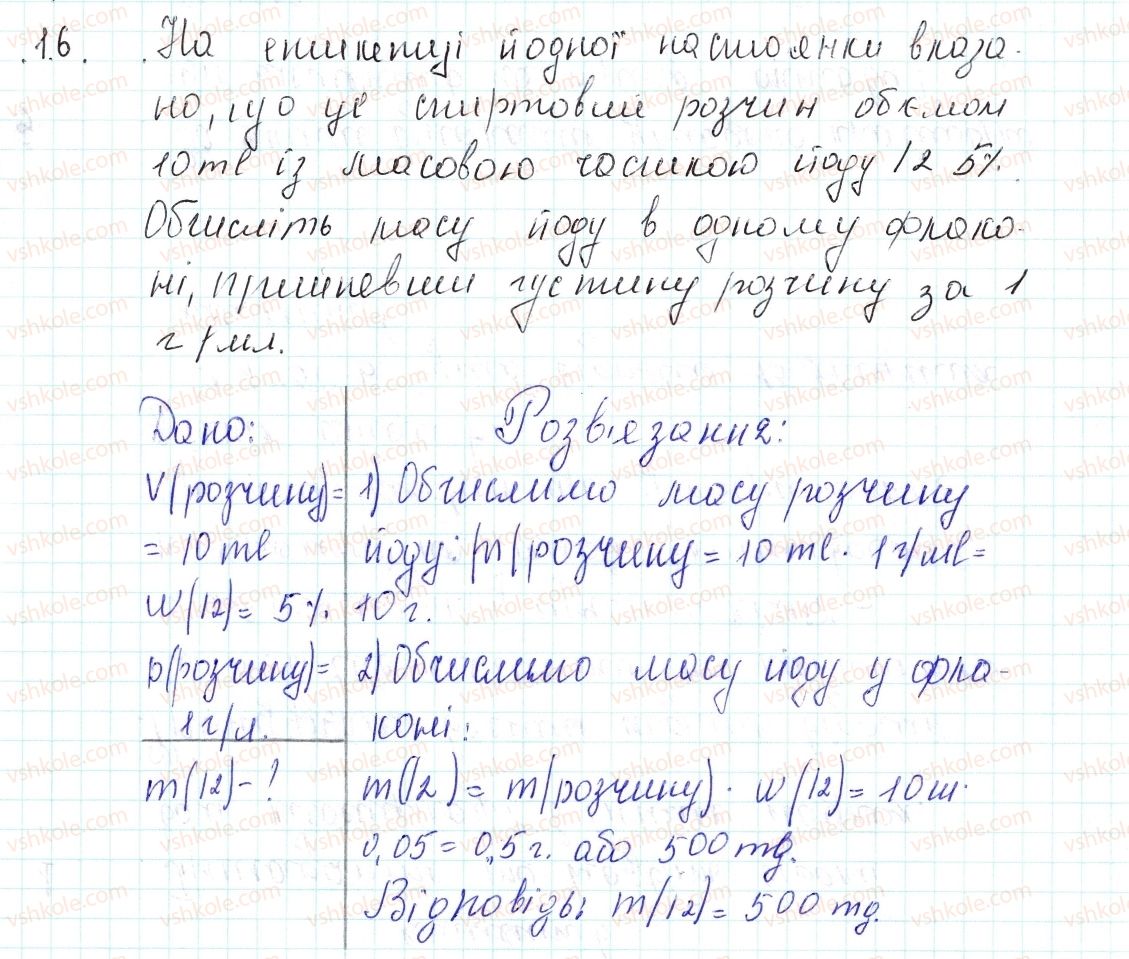 16. На етикетці йодної настоянки вказа-
но, що це спиртовий розчин обємом
10 ml із масовою часткою йоду I2 5%.
Обчисліть масу йоду в одному флако-
ні, прийнявши густину розчину за 1
г/мл.
Дано:
V(розчину)=
= 10 ml
W(I2)= 5%.
p(розчину)=
1 г/л.
m(I2)-?
Розв'язання:
1) Обчислимо масу розчину
йоду: m(розчину = 10 ml · 1 г/ml =
10 г.
2) Обчислимо масу йоду у фла-
коні:
m(I2) = m(розчину) · W(I2) = 10 ·
0,05 = 0,5 г. або 500 mg.
Відповідь: m(I2) = 500 mg.
vshkole.com